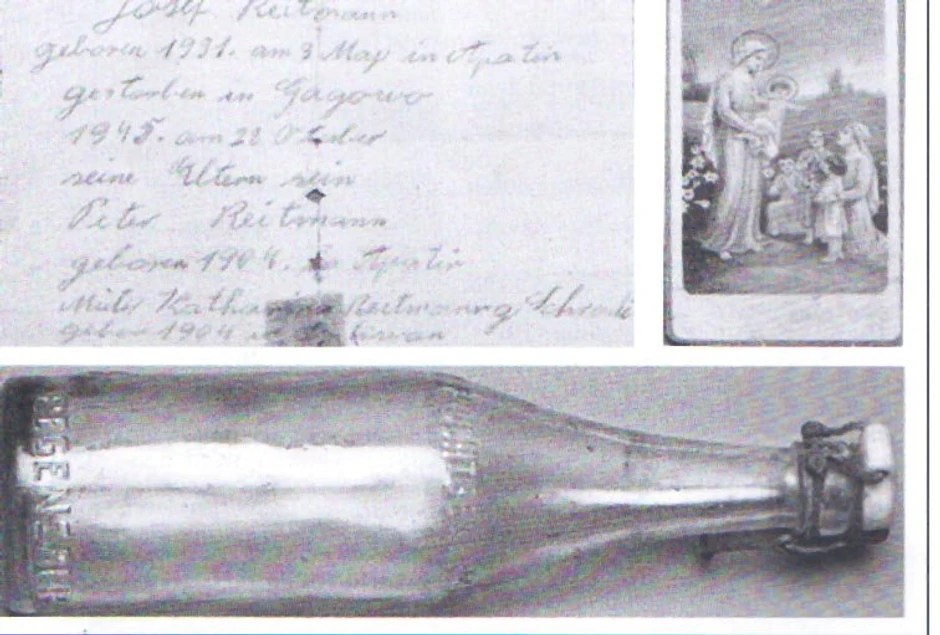 Josef Reitmann
geboren 1931. am 3 May in Apatin
gestorben in Gagowo
1945. am 28 Otober
seine Eltern sein
Peter Reitmann
geboren 1904. in Apatin
Muter Katharina Reitmann g
gebor 1904 in